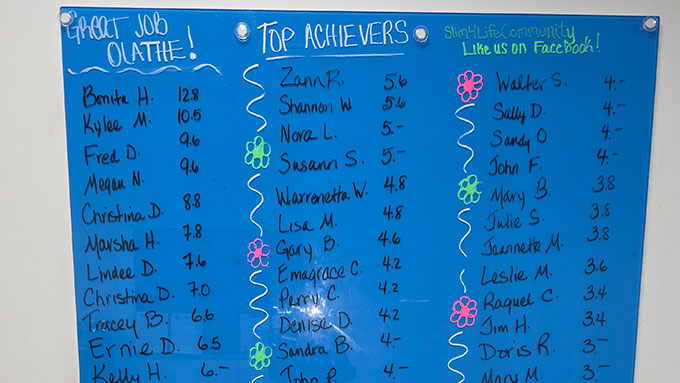 GREAT JOB
OLATHE!
Bonita H. 12.8
Kylee M. 10.5
Fred D. 9.6
Megan N. 9.6
Christina D. 8.8
Marsha H. 7.8
Lindee D. 7.6
Christina D. 7.0
Tracey B. 6.6
Ernie D. 6.5
Kelly H. 6.-
TOP ACHIEVERS
Zann R. 5.6
Shannon W. 5.6
Nora L. 5.-
Susann S. 5.-
Warronetta W. 4.8
Lisa M. 4.8
Gary B. 4.6
Emagrace C. 4.2
Perry C. 4.2
Denise D. 4.2
Sandra B. 4.-
John P. 4.-
Slim4LifeCommunity
Like us on Facebook!
Walter S. 4.-
Sally D. 4.-
Sandy O. 4.-
John F. 4.-
Mary B. 3.8
Julie S. 3.8
Jeannette M. 3.8
Leslie M. 3.6
Raquel C. 3.4
Jim H. 3.4
Doris R. 3.-
Mary M. 3.-